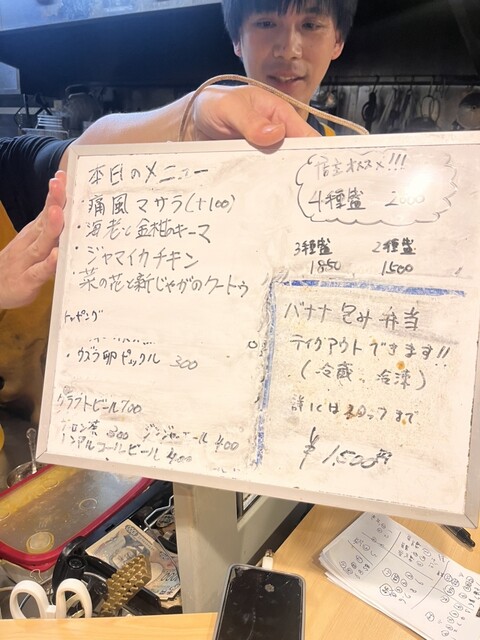 本日のメニュー
・痛風マサラ(+100)
・海老と金柑のキーマ
・ジャマイカチキン
・菜の花と新じゃがのクートゥ
トッピング
・ウズラ卵ピックル 300
クラフトビール 700
ウーロン茶 300 ジンジャーエール 400
ノンアルコールビール 400
店主オススメ!!!
4種盛 2000
3種盛 2種盛
1850 1500
バナナ包み弁当
テイクアウトできます!!
(冷蔵、冷凍)
詳しくはスタッフまで
¥1,500円